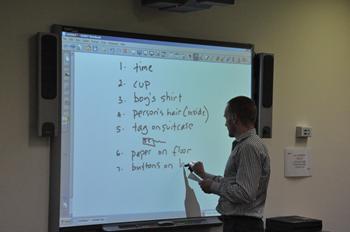 1. time
2. cup
3. boy's shirt
4. person's hair (inside)
5. tag on suitcase
6. paper on floor
7. buttons on